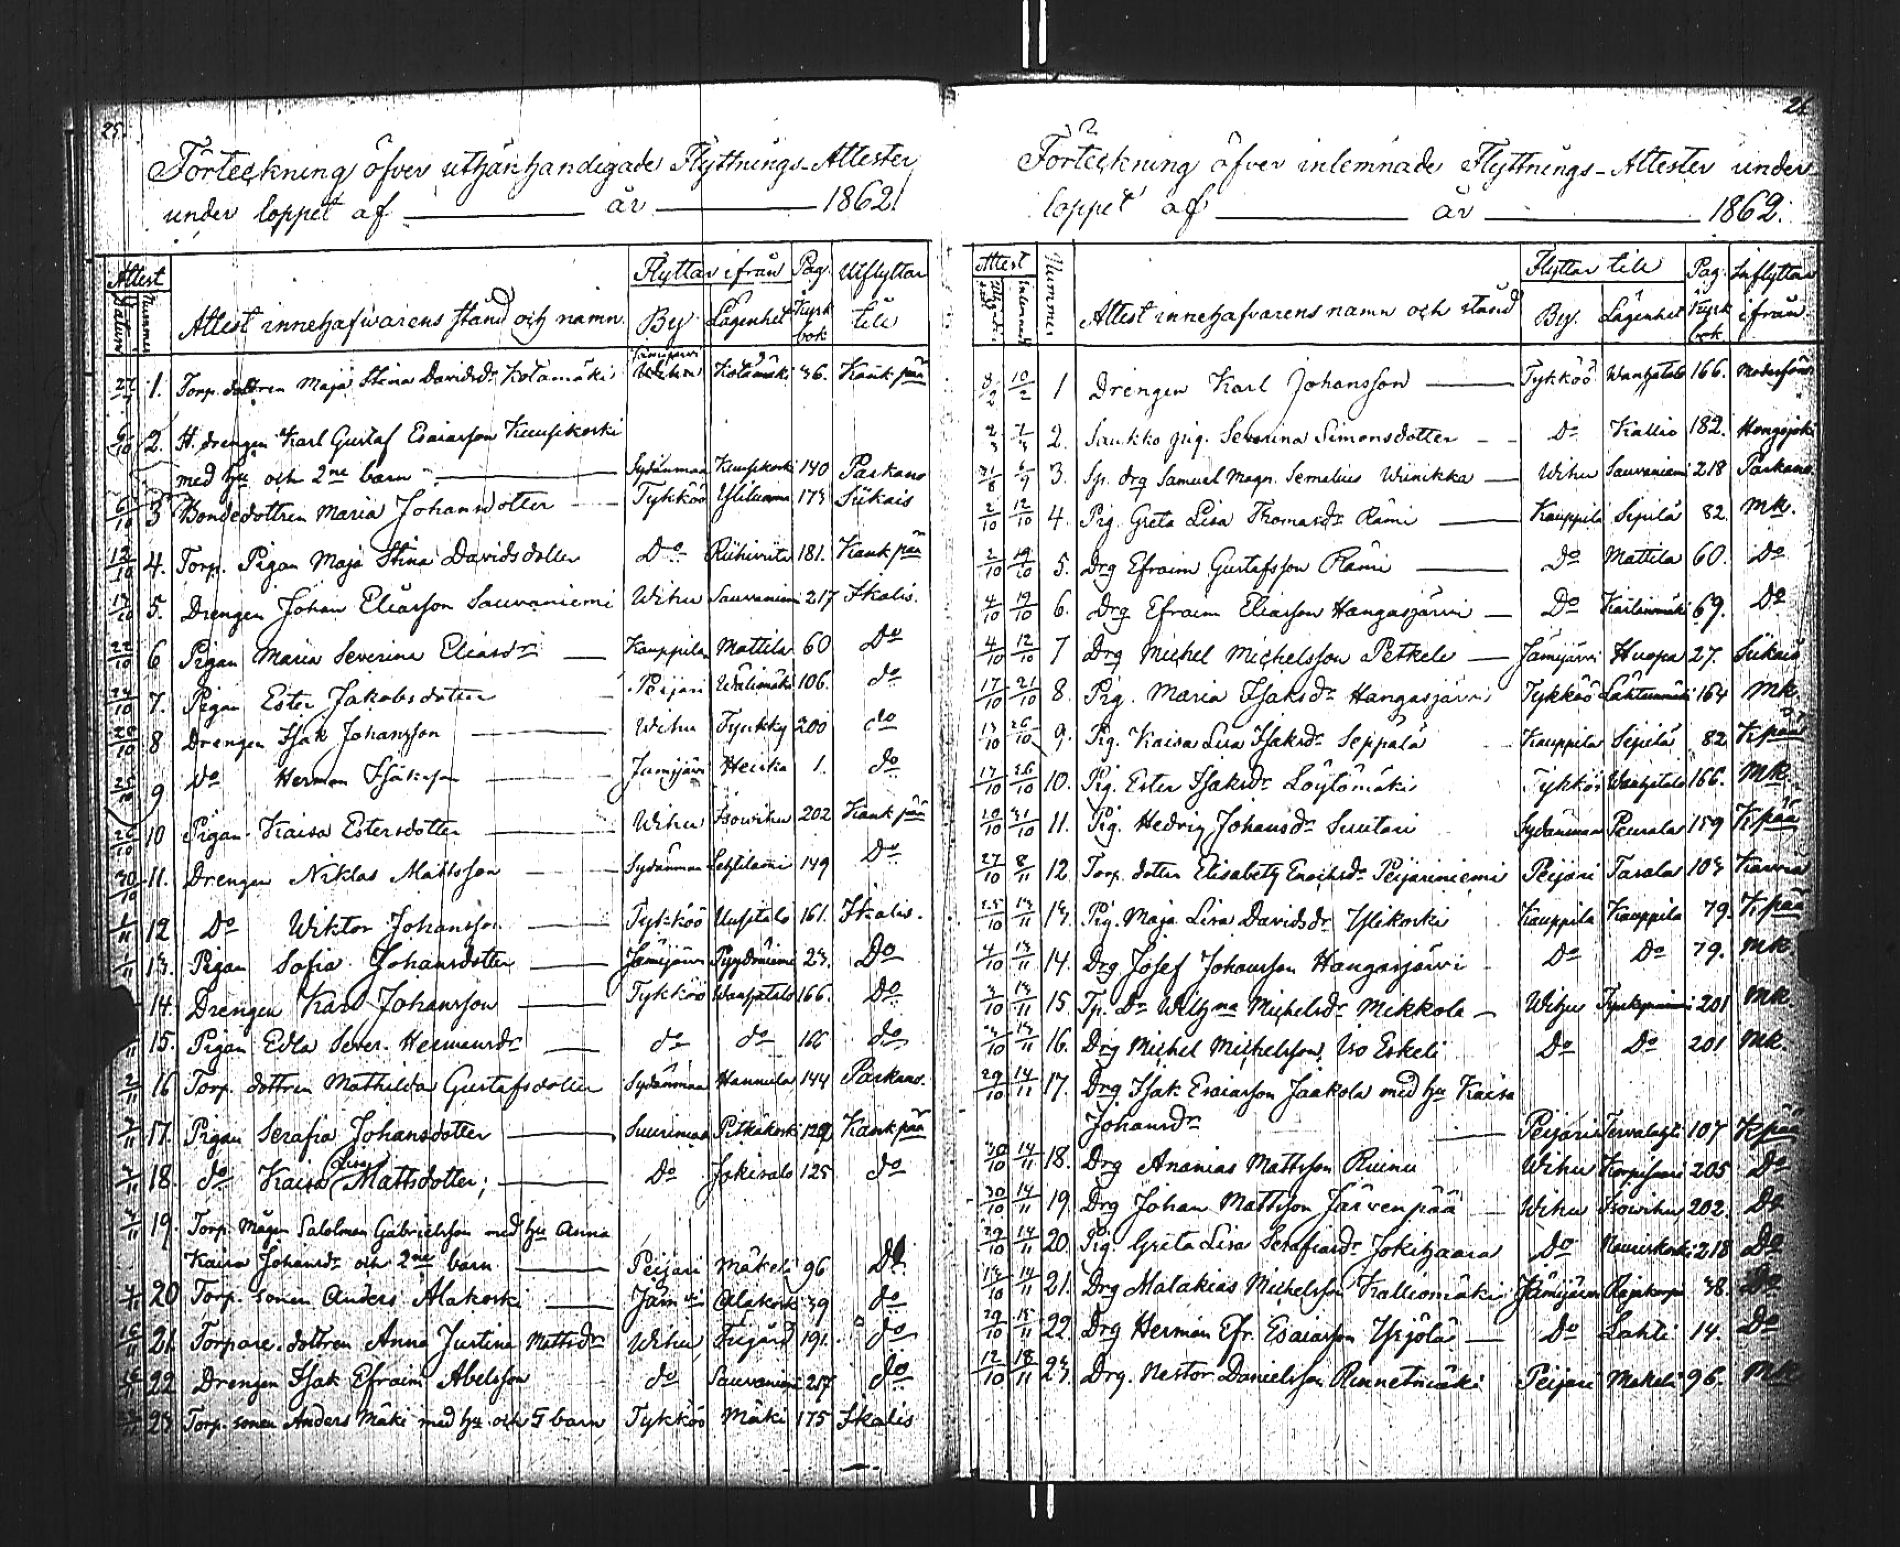 25.
Förteckning öfver uthänhandigade Flyttnings-Attester
under loppet af ——— år ——— 1862.
Attest
Datum
Nummer
Attest innehafwarens stånd och namn.
Flyttar ifrån
By
Lägenhet
Pag. Kyrk bok
Utflyttar till
1. Torp. dottren Maja Stina Davidsdr Kotamäki Jämijärvi Kotamäki 36. Kankpää
6/10 2. H. drengen Karl Gustaf Esaiasson Kuusikoski
med hu och 2ne barn Sydänmaa Kuusikoski 140 Parkano
6/10 3 Bondedottren Maria Johansdotter Tykköö Yliluoma 173 Siikais
12/10 4. Torp. Pigan Maja Stina Davidsdotter Do Riihiviita 181. Kankpää
5. Drengen Johan Eliasson Sauvaniemi Wihu Sauvaniemi 217 Ikalis.
22/10 6 Pigan Maria Severina Eliasdr Kauppila Mattila 60 Do
24/10 7. Pigan Ester Jakobsdotter Peijari Wälimäki 106. do
8 Drengen Isak Johansson Wihu Tyrkky 200 do
9 Do Herman Isaksson Jämijärvi Heiska 1. do
26/10 10 Pigan Kaisa Estersdotter Wihu Isowihu 202 Kankpää
30/10 11. Drengen Niklas Mattsson Sydänmaa Lehtilami 149 Do
1/11 12 Do Wiktor Johansson Tykköö Uusitalo 161. Ikalis.
1/11 13. Pigan Sofia Johansdotter Jämijärvi Pyydniemi 23. Do
14. Drengen Karl Johansson Tykköö Wanhatalo 166. Do
15. Pigan Edla Sever. Hermansdr do do 166 do
2/11 16 Torp. dottren Mathilda Gustafsdotter Sydänmaa Hannula 144 Parkano.
17. Pigan Serafia Johansdotter Suurimaa Pitkäkoski 129 Kankpää
18. do Kaisa Lisa Mattsdotter; Do Jokisalo 125 do
19. Torp. mågen Salolman Gabrielsson med hu Anna
Kaisa Johansdr och 2ne barn Peijari Mäkeli 96 Do
20 Torp. sonen Anders Alakoski Jämijvi Alakoski 39 do
21. Torpare. dottren Anna Justina Mattsdr Wihu Frigård 191. do
22 Drengen Isak Efraim Abelsson do Sauvaniemi 217 do
23 Torp. sonen Anders Mäki med hu och 5 barn Tykköö Mäki 175 Ikalis
26
Förteckning öfver inlemnade Flyttnings-Attester under
loppet af ——— år ——— 1862.
Attest
Nummer
Attest innehafvarens namn och stånd
Flyttar till
By.
Lägenhet
Pag. Kyrk bok
Inflyttar ifrån
8/2 10/2 1 Drengen Karl Johansson Tykköö Wanhatalo 166.
2/3 7/3 2. Saukko pig. Severina Simonsdotter Do Kallio 182. Hongojoki
3. Sp. drg Samuel Magn. Sernelius Wiinikka Wihu Sauvaniemi 218 Parkano
2/10 12/10 4. Pig. Greta Lisa Thomasdr Rämi Kauppila Sipilä 82. Mk.
2/10 19/10 5. Drg Efraim Gustafsson Rämi Do Mattila 60. Do
4/10 19/10 6. Drg Efraim Eliasson Hangasjärvi Do 69. Do
4/10 12/10 7 Drg Michel Michelsson Petkele Jämijärvi Huopa 27. Siikais
17/10 21/10 8. Pig. Maria Isaksdr Hangasjärvi Tykköö Lähteenmäki 164 Mk.
13/10 26/10 9. Pig. Kaisa Lisa Isaksdr Seppälä Kauppila Sipilä 82 Kpää
17/10 26/10 10. Pig. Ester Isaksdr Löytömäki Tykköö Wanhatalo 166. Mk.
20/10 31/10 11. Pig. Hedvig Johansdr Suutari Sydänmaa Peurala 159 Kpää
27/10 8/11 12. Torp. dotter Elisabeth Enochsdr Peijariniemi Peijari Tarala 103 Karvia
25/10 13/11 13. Pig. Maja Lisa Davidsdr Ylikoski Kauppila Kauppila 79. Kpää
4/10 13/11 14. Drg Josef Johansson Hangasjärvi Do Do 79. Mk
3/10 13/11 15 Tp. Dr Wilhna Michelsdr Mikkola Wihu 201 Mk.
3/10 13/11 16. Drg Michel Michelsson Iso Eskeli Do Do 201 Mk.
29/10 14/11 17. Drg Isak Esaiasson Jaakola med hu Kaisa
Johansdr Peijari Tervalahti 107 Kpää
30/10 14/11 18. Drg Ananias Mattsson Ruinu Wihu Korpisaari 205 Do
30/10 14/11 19. Drg Johan Mattsson Järvenpää Wihu Isowihu 202. Do
29/10 14/11 20. Pig. Greta Lisa Serafiasdr Jokihaara Do 218 Do
13/10 14/11 21. Drg Malakias Michelsson Kalliomäki Jämijärvi 38. Do
29/10 15/11 22. Drg Herman Efr. Esaiasson Yrjölä Do Lahti 14. Do
12/10 18/11 23. Drg. Nestor Danielsson Rinnetmäki Peijari Mäkeli 96. Mk